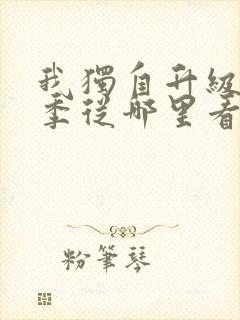 我獨自升級
季從哪里看
粉筆琴